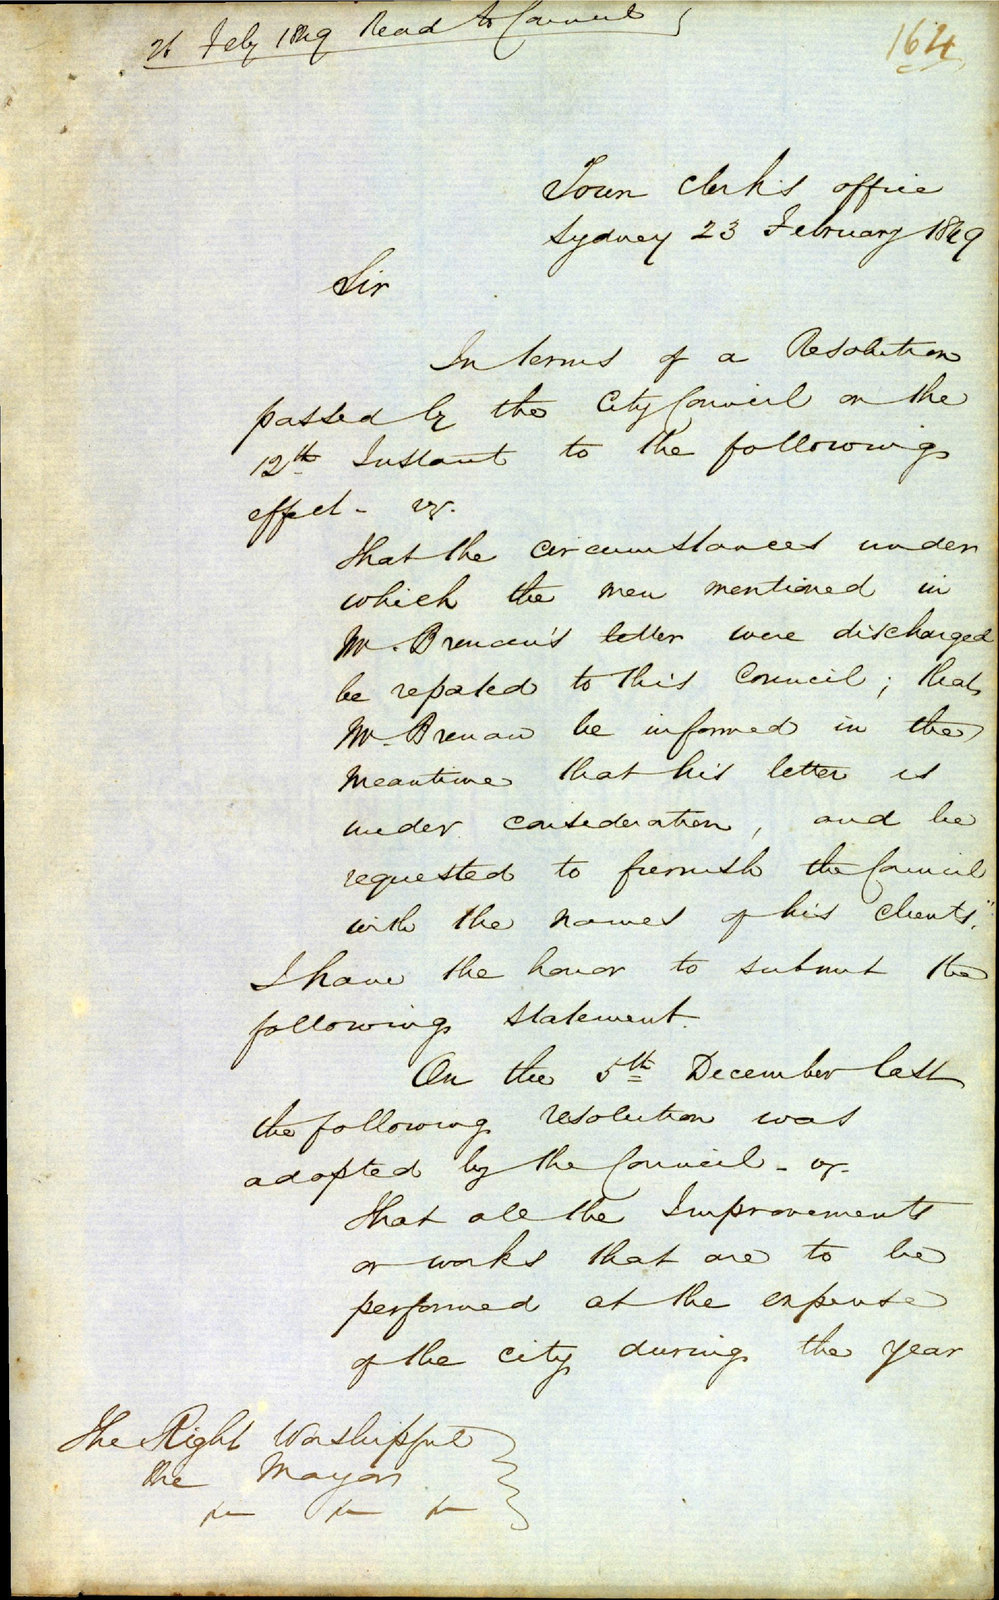 26 Feby 1849 Read to Council
164
Town Clerk's office
Sydney 23 February 1849
Sir
In terms of a Resolution
passed by the City Council on the
12th Instant to the following
effect - vz.
that the circumstances under
which the men mentioned in
Mr. Brenan's letter were discharged
be reported to this Council; that
Mr. Brenan be informed in the
meantime that his letter is
under consideration, and be
requested to furnish the Council
with the names of his clients."
I have the honor to submit the
following statement.
On the 5th December last
the following resolution was
adopted by the Council - vz.
that all the Improvements
or works that are to be
performed at the expense
of the city during the year
The Right Worshipful
the Mayor